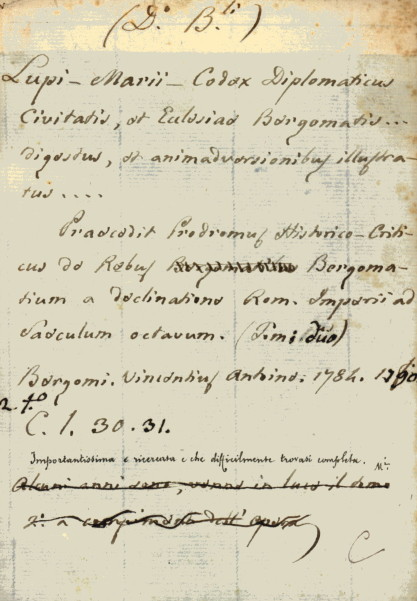 (D. B.ti)
Lupi - Marii - Codex Diplomaticus
Civitatis, et Eclesiae Bergomatis...
digestus, et animadversionibus illustra-
tus....
Praecedit Prodromus Historico-Criti-
cus de Rebus Bergoma-
tium a declinatione Rom. Imperii ad
Saeculum octavum. (Tomi duo)
Bergomi. Vincentius Antoine. 1784. 1790
2. f.o
C. 1. 30. 31.
Importantissima e ricercata e che difficilmente trovasi completa. M.
Alcuni anni sono, venne in luce il
2.o a compimento dell' opera)
C